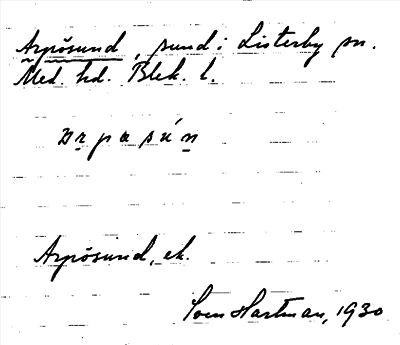 Arpösund, sund i Listerby sn.
Med. hd. Blek. l.
arpasún
Arpösund, ek.
Sven Hartman, 1930